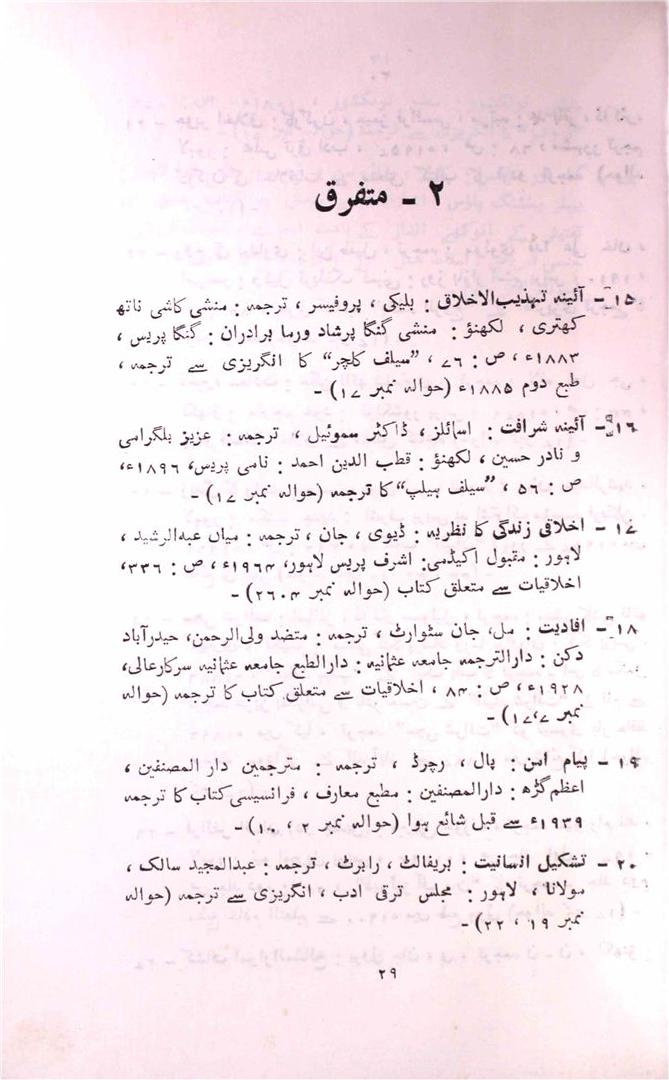 ۲ - متفرق
۱۵ - آئینہ تہذیب‌الاخلاق : بلیکی ، پروفیسر ، ترجمہ : منشی کاشی ناتھ
کھتری ، لکھنؤ : منشی گنگا پرشاد ورما برادران : گنگا پریس ،
۱۸۸۳ء ، ص : ۷۶ ، ”سیلف کلچر“ کا انگریزی سے ترجمہ ،
طبع دوم ۱۸۸۵ء (حوالہ نمبر ۱۷) -
۱۶ - آئینہ شرافت : اسمائلز ، ڈاکٹر سموئیل ، ترجمہ : عزیز بلگرامی
و نادر حسین ، لکھنؤ : قطب الدین احمد : نامی پریس، ۱۸۹۶ء،
ص : ۵۶ ، ”سیلف ہیلپ“ کا ترجمہ (حوالہ نمبر ۱۷) -
۱۷ - اخلاقی زندگی کا نظریہ : ڈیوی ، جان ، ترجمہ : میاں عبدالرشید ،
لاہور : مقبول اکیڈمی: اشرف پریس لاہور، ۱۹۶۴ء ، ص : ۳۳۶،
اخلاقیات سے متعلق کتاب (حوالہ نمبر ۲۶۰۴) -
۱۸ - افادیت : مل، جان سٹوارٹ ، ترجمہ : متضد ولی‌الرحمن، حیدرآباد
دکن : دارالترجمہ جامعہ عثمانیہ : دارالطبع جامعہ عثمانیہ سرکارعالی،
۱۹۲۸ء ، ص : ۸۴ ، اخلاقیات سے متعلق کتاب کا ترجمہ (حوالہ
نمبر ۱۷،۷) -
۱۹ - پیام امن : پال ، رچرڈ ، ترجمہ : مترجمین دار المصنفین ،
اعظم گڑھ : دارالمصنفین : مطبع معارف ، فرانسیسی کتاب کا ترجمہ
۱۹۳۹ء سے قبل شائع ہوا (حوالہ نمبر ۲ ، ۱۰) -
۲۰ - تشکیل انسانیت : بریفالٹ ، رابرٹ ، ترجمہ : عبدالمجید سالک ،
مولانا ، لاہور : مجلس ترقی ادب ، انگریزی سے ترجمہ (حوالہ
نمبر ۱۹ ، ۲۲) -
۲۹